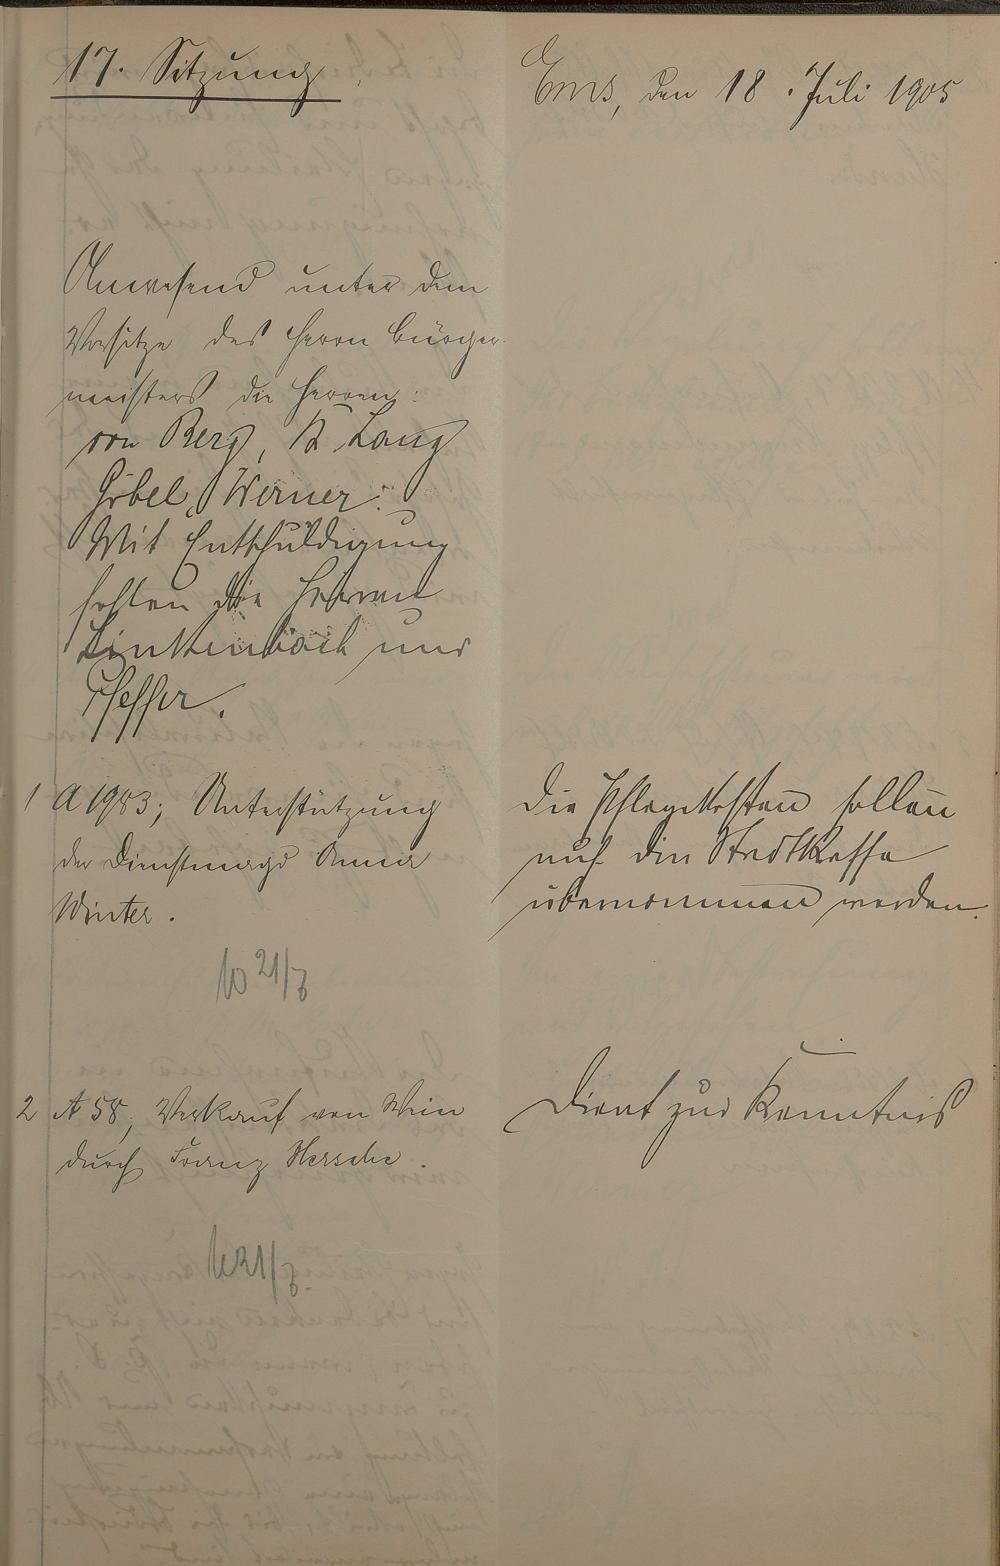 17. Sitzung.
Ems, den 18. Juli 1905
Anwesend unter dem
Vorsitze des Herrn Bürger-
meisters die Herren:
von Berg, K. Lang
Göbel, Werner.
Mit Entschuldigung
fehlen die Herren
Linkenbach und
Pfeffer.
1 A 1983; Unterstützung
der Dienstmagd Anna
Winter.
Die Pflegekosten sollen
auf die Stadtkasse
übernommen werden.
21/7
2 A 58, Verkauf von Wein
durch Franz Hersche.
Dient zur Kenntnis
21/7.